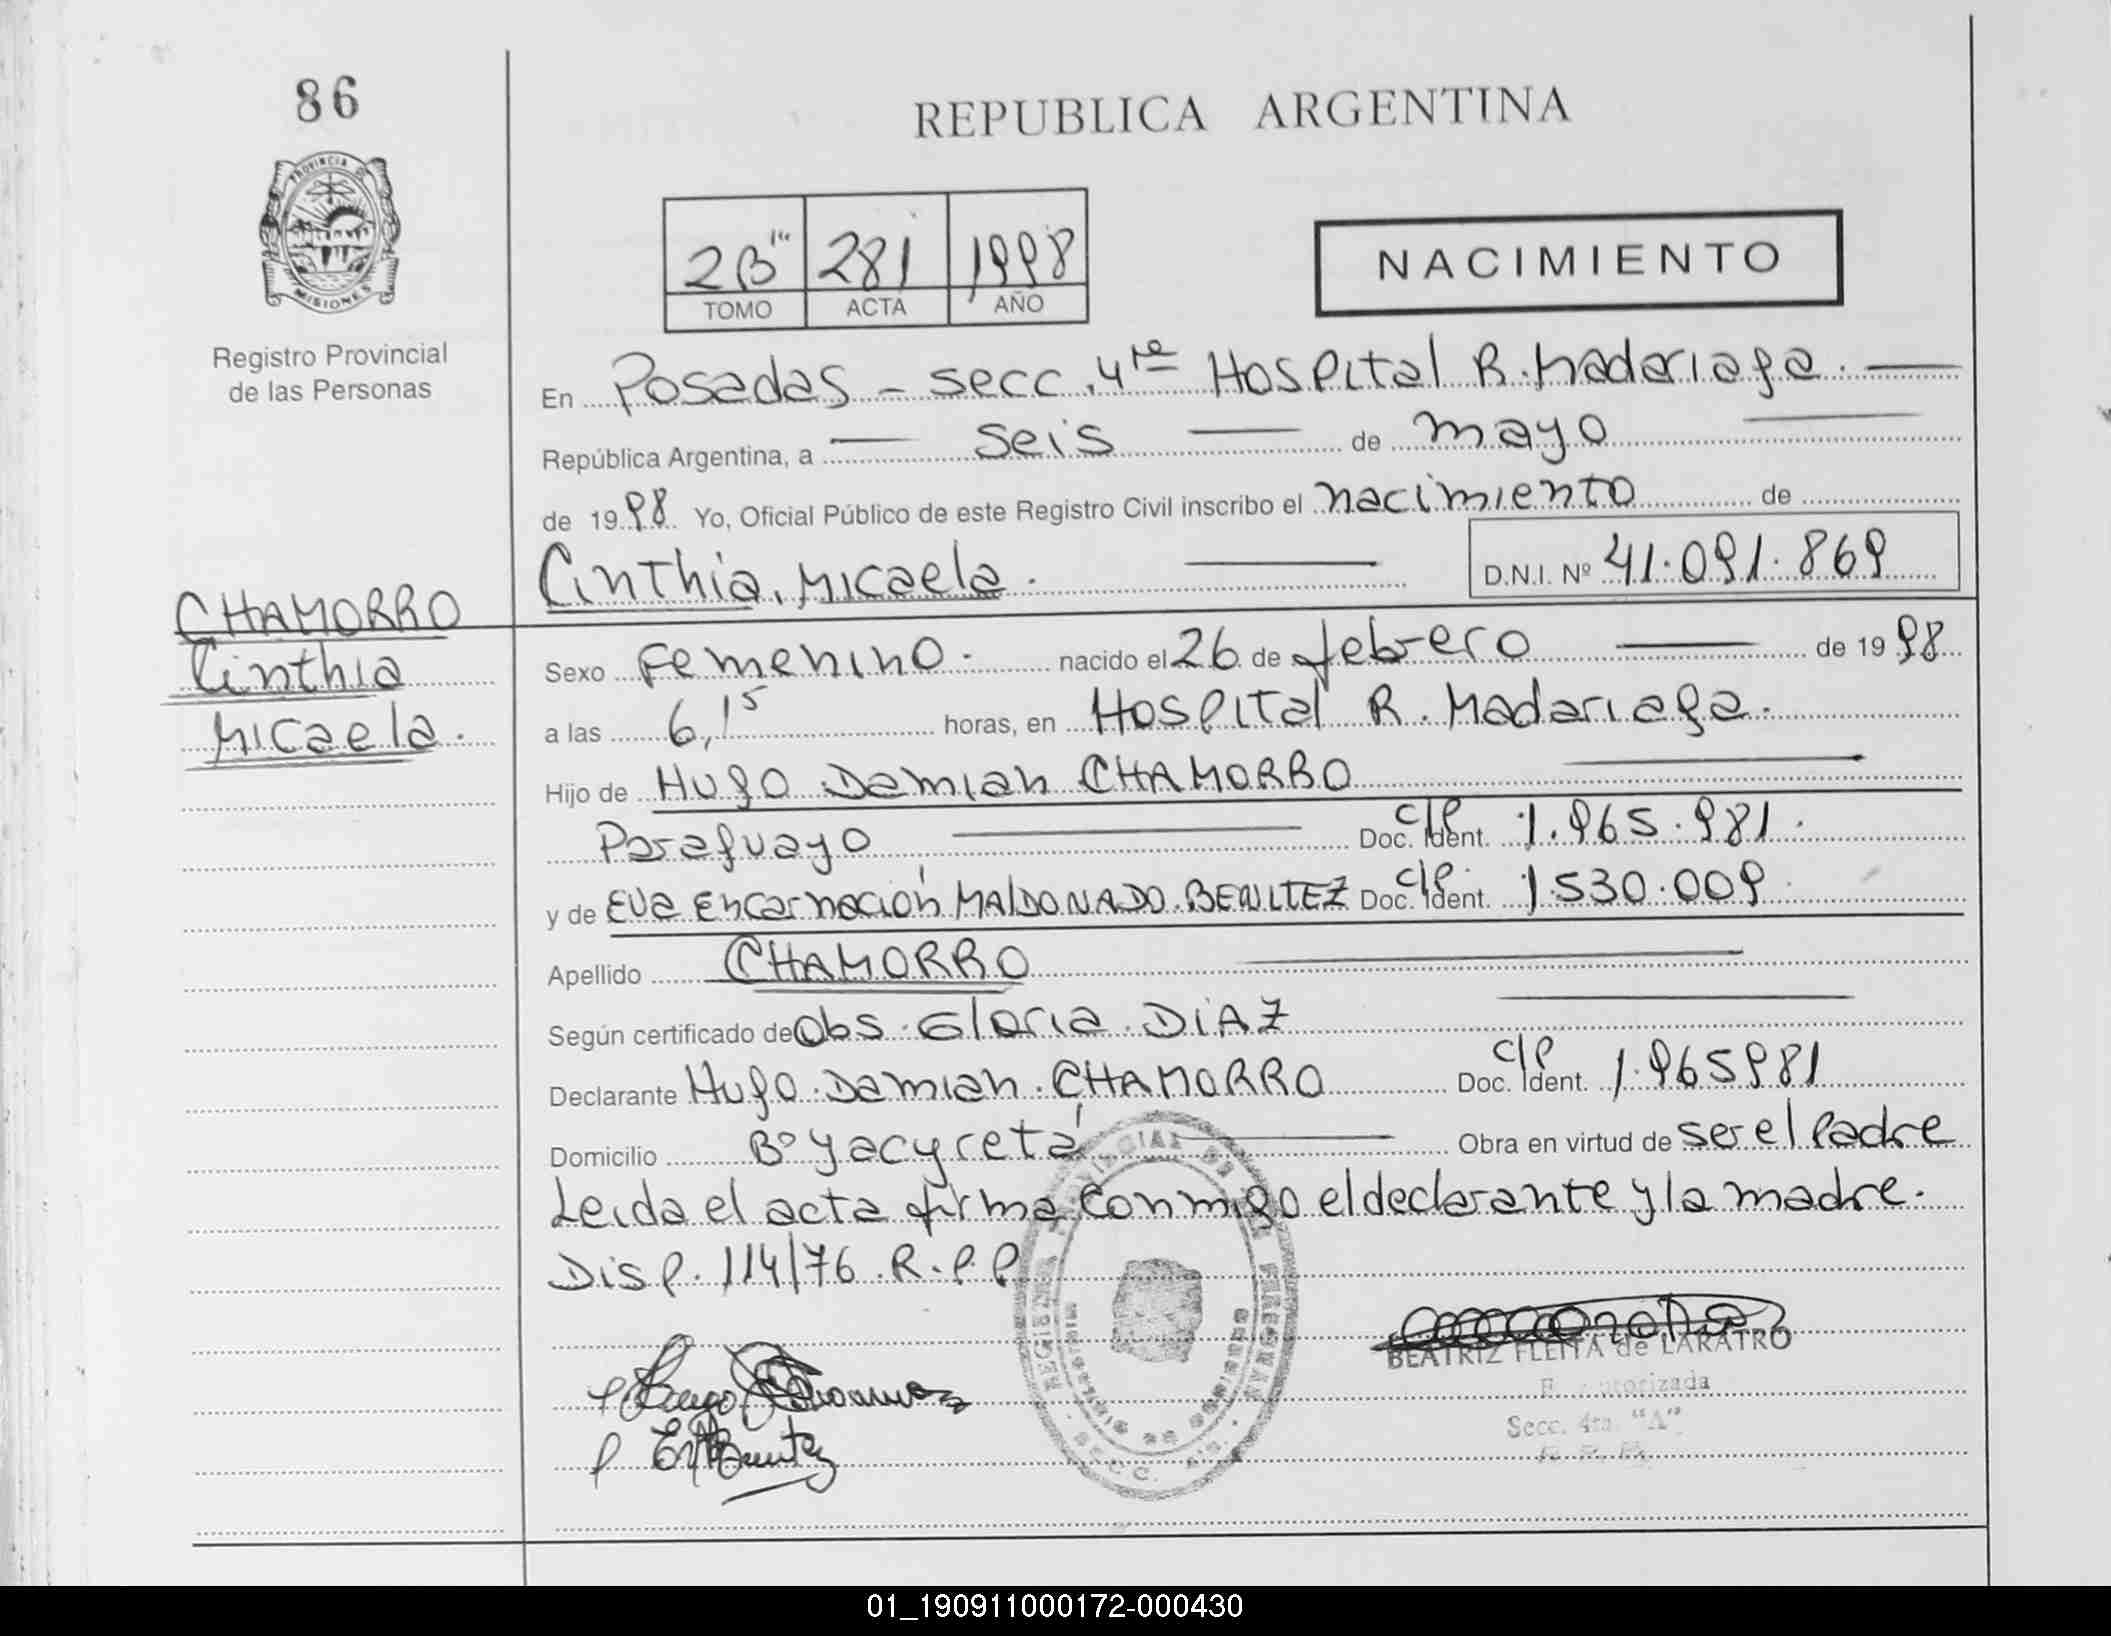 86
REPUBLICA ARGENTINA
PROVINCIA DE
MISIONES
Registro Provincial
de las Personas
2B 281 1998
TOMO ACTA AÑO
NACIMIENTO
En Posadas - secc. 4ta Hospital R. Madariaga. —
República Argentina, a — seis — de mayo —
de 1998 Yo, Oficial Público de este Registro Civil inscribo el nacimiento de
Cinthia, Micaela. — D.N.I. Nº 41.091.869
CHAMORRO
Cinthia
Micaela.
Sexo Femenino. nacido el 26 de febrero — de 1998
a las 6,15 horas, en Hospital R. Madariaga.
Hijo de Hugo Damian CHAMORRO —
Paraguayo — Doc. Ident. C/P 1.965.981.
y de Eva Encarnación MALDONADO BENITEZ Doc. Ident. C/P 1.530.009
Apellido CHAMORRO —
Según certificado de Obs. Gloria DIAZ —
Declarante Hugo Damian CHAMORRO Doc. Ident. C/P 1.965981
Domicilio Bº yacyretá — Obra en virtud de ser el Padre
Leida el acta firma conmigo el declarante y la madre.
Disp. 114/76 R.P.P
BEATRIZ FLEITA de LARATRO
Secc. 4ta. "A"
01_190911000172-000430